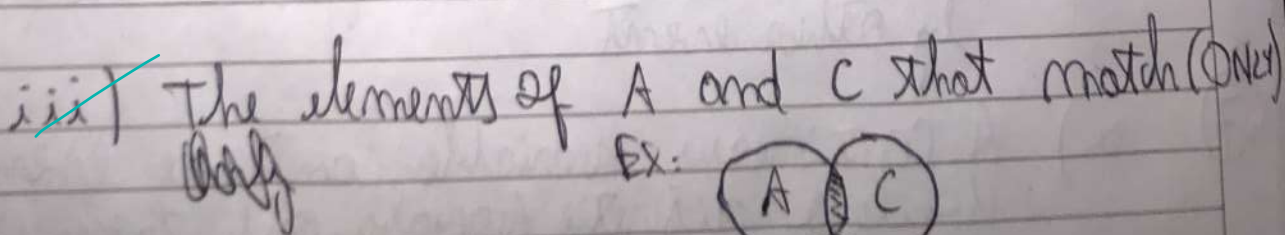 iii) The elements of A and C that match (ONLY)
Only Ex: A C